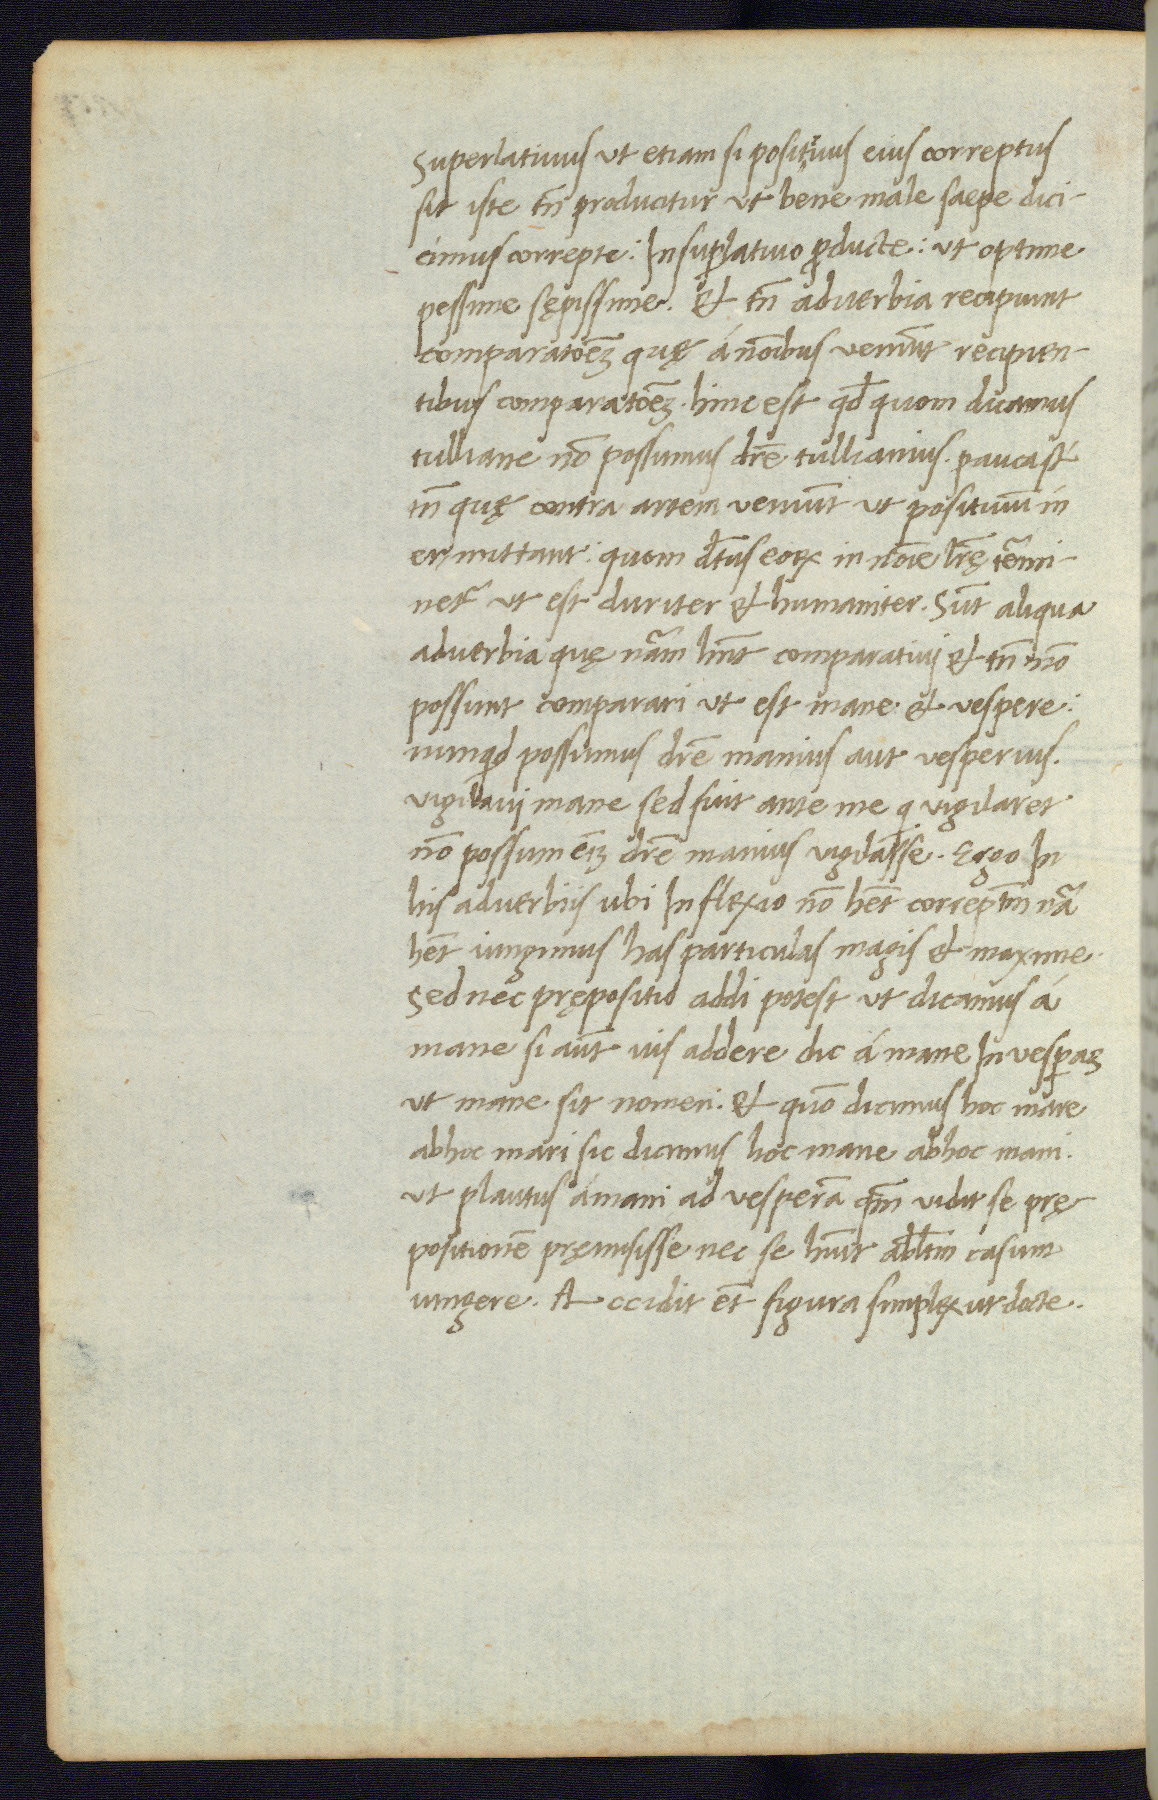 Superlatiuus ut etiam si positiuus eius correptus
sit iste tñ producitur ut bene male saepe dici-
cimus correpte: In suꝑlatiuo ꝓducte: ut optime
pessime sępissime. & tñ aduerbia recipiunt
comparatōeꝫ quę á noībus ueniūt recipien-
tibus comparatōeꝫ. hinc est qđ quom dicamus
tulliane nō possumus dr̄e tullianius. pauca sūt
tn̄ quę contra artem ueniūt ut positiuū in
er mittant: quom dtūs eoꝝ in noīe Ir̄ę tāmi-
net̃ ut est duriter & humaniter. Sūt aliqua
aduerbia quę nām hn̄t comparatiui & tn̄ nō
possunt comparari ut est mane & uespere:
nunqđ possumus dr̄e manius aut uesperius.
uigilaui mane sed fuit ante me q uigilaret
nō possum etꝫ dr̄e manius uigilasse. Ergo In
his aduerbiis ubi Inflexio nō hēt correptm̄ nā
hēt iungimus has particulas magis & maxime
Sed nec prępositio addi potest ut dicamus á
mane si aūt uis addere dic á mane In uesꝑaꝫ
ut mane sit nomen. & quō dicimus hoc mare
abhoc mari sic dicimus hoc mane abhoc mani.
ut plautus á mani ad uesperā qm̄ uidit se prę
positionē pręmisisse nec se hūit abltm̄ casum
iungere. Accidit et̄ figura simplex ut docte.